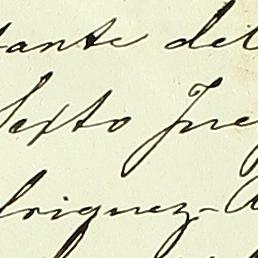 tante del
Sexto Jue
driguez-A